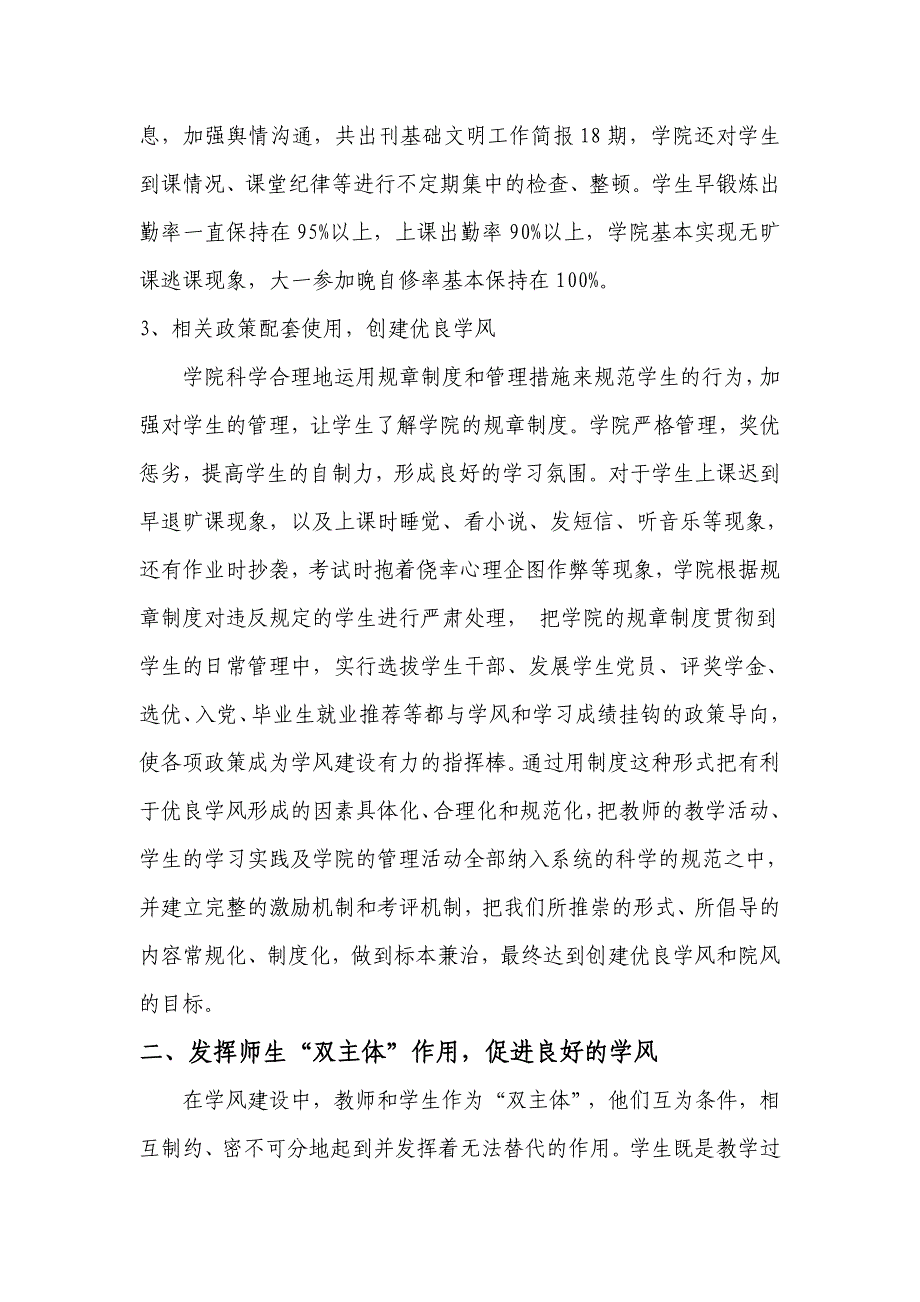 息，加强舆情沟通，共出刊基础文明工作简报 18 期，学院还对学生
到课情况、课堂纪律等进行不定期集中的检查、整顿。学生早锻炼出
勤率一直保持在 95%以上，上课出勤率 90%以上，学院基本实现无旷
课逃课现象，大一参加晚自修率基本保持在 100%。
3、相关政策配套使用，创建优良学风
学院科学合理地运用规章制度和管理措施来规范学生的行为，加
强对学生的管理，让学生了解学院的规章制度。学院严格管理，奖优
惩劣，提高学生的自制力，形成良好的学习氛围。对于学生上课迟到
早退旷课现象，以及上课时睡觉、看小说、发短信、听音乐等现象，
还有作业时抄袭，考试时抱着侥幸心理企图作弊等现象，学院根据规
章制度对违反规定的学生进行严肃处理， 把学院的规章制度贯彻到
学生的日常管理中，实行选拔学生干部、发展学生党员、评奖学金、
选优、入党、毕业生就业推荐等都与学风和学习成绩挂钩的政策导向，
使各项政策成为学风建设有力的指挥棒。通过用制度这种形式把有利
于优良学风形成的因素具体化、合理化和规范化，把教师的教学活动、
学生的学习实践及学院的管理活动全部纳入系统的科学的规范之中，
并建立完整的激励机制和考评机制，把我们所推崇的形式、所倡导的
内容常规化、制度化，做到标本兼治，最终达到创建优良学风和院风
的目标。
二、发挥师生“双主体”作用，促进良好的学风
在学风建设中，教师和学生作为“双主体”，他们互为条件，相
互制约、密不可分地起到并发挥着无法替代的作用。学生既是教学过